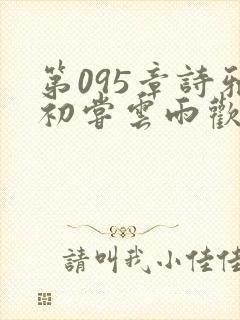 第095章詩雅
初嘗雲雨歡
請叫我小佳佳